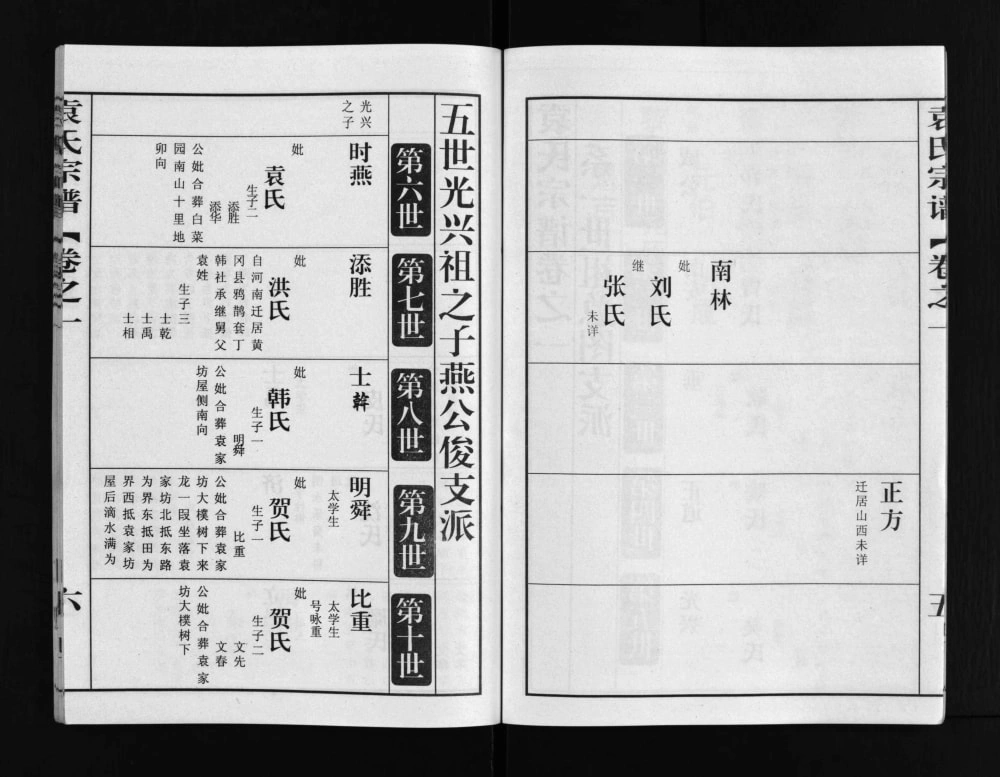 袁氏宗谱【卷之一
五
南林
妣
刘氏
继
张氏
未详
正方
迁居山西未详
五世光兴祖之子燕公俊支派
第六世
光兴
之子
时燕
妣
袁氏
生子二
添胜
添华
公妣合葬白菜
园南山十里地
卯向
第七世
添胜
妣
洪氏
自河南迁居黄
冈县鸦鹊套丁
韩社承继舅父
袁姓
生子三
士乾
士禹
士相
第八世
士榦
妣
韩氏
生子一
明舜
公妣合葬袁家
坊屋侧南向
第九世
明舜
太学生
妣
贺氏
生子一
比重
公妣合葬袁家
坊大樸树下来
龙一叚坐落袁
家坊北抵东路
为界东抵田为
界西抵袁家坊
屋后滴水满为
第十世
比重
太学生
号咏重
妣
贺氏
生子二
文先
文春
公妣合葬袁家
坊大樸树下
袁氏宗谱【卷之一
六